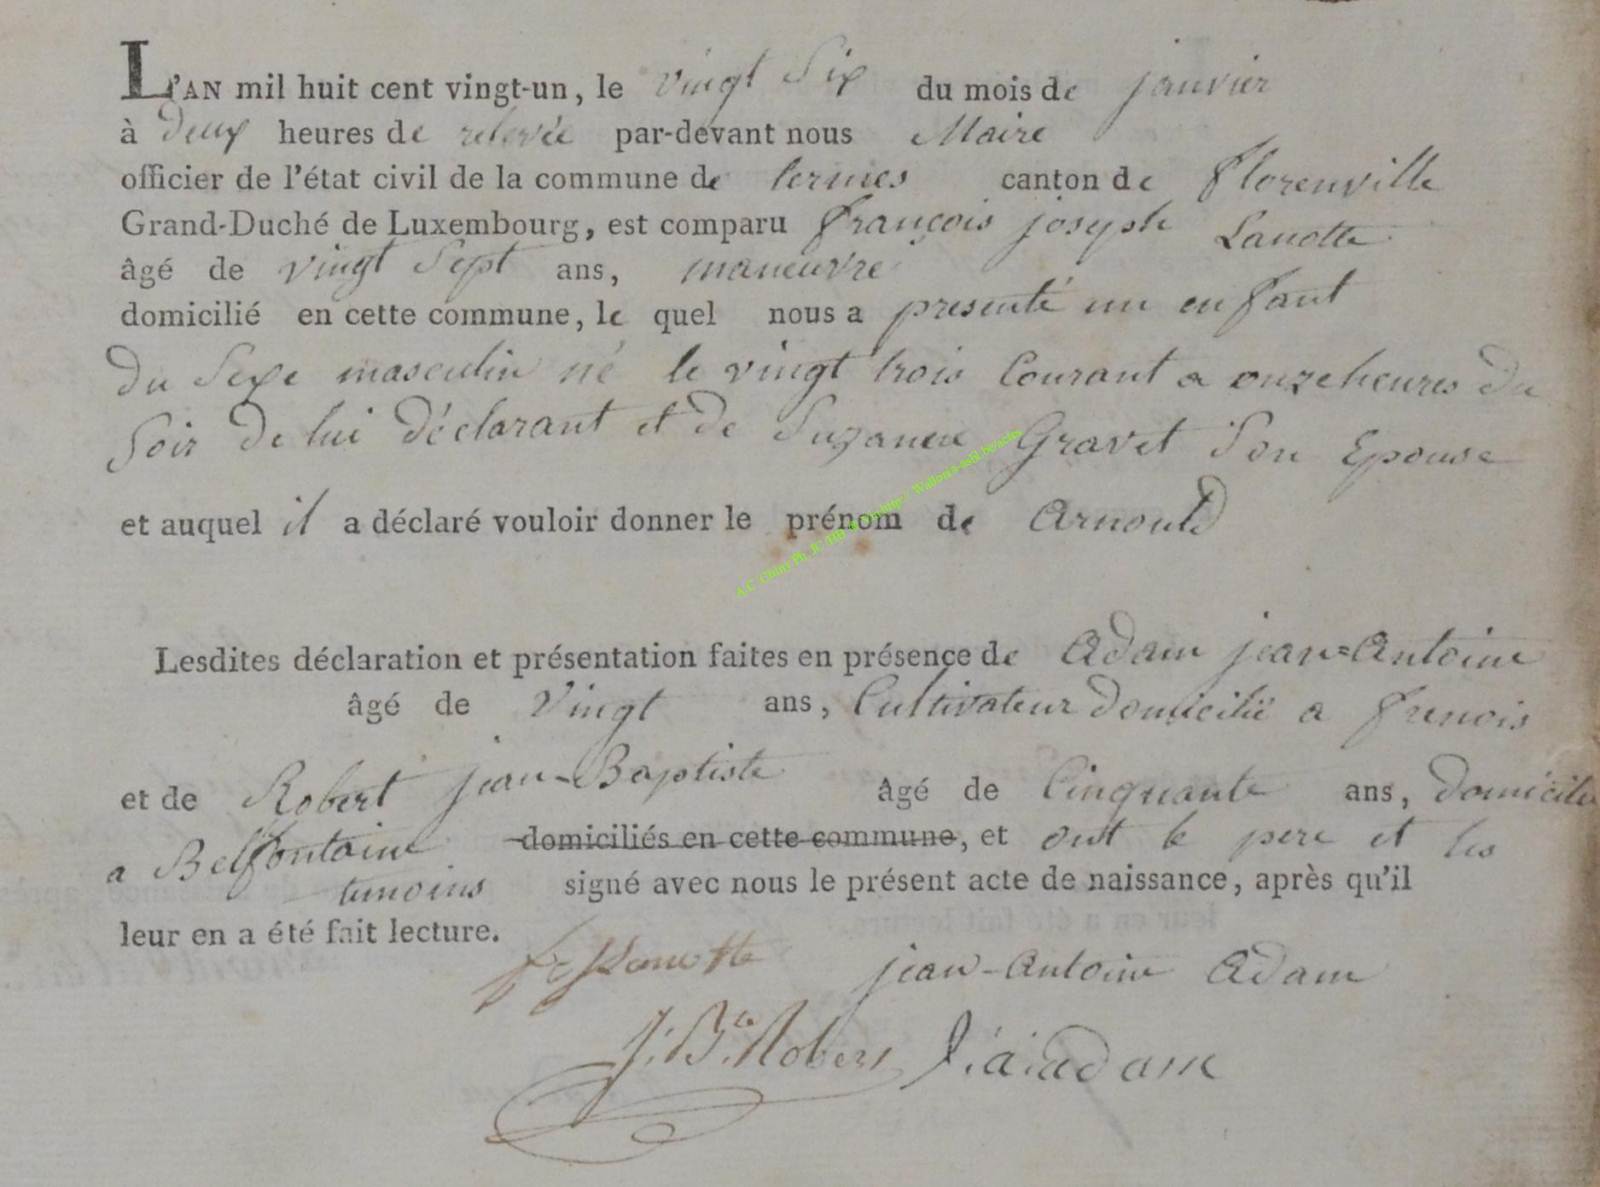 L'AN mil huit cent vingt-un, le vingt Six du mois de janvier
à deux heures de relevée par-devant nous Maire
officier de l'état civil de la commune de termes canton de florenville
Grand-Duché de Luxembourg, est comparu françois joseph Lanotte
âgé de vingt Sept ans, maneuvre
domicilié en cette commune, le quel nous a presenté un enfant
du Sexe masculin né le vingt trois Courant a onze heures du
Soir de lui déclarant et de Gravet Son Epouse
et auquel il a déclaré vouloir donner le prénom de Arnould
Lesdites déclaration et présentation faites en présence de Adam jean=Antoine
âgé de Vingt ans, Cultivateur domicilié a frenois
et de Robert jean-Baptiste âgé de Cinquante ans, domicilié
a Belfontaine domiciliés en cette commune, et ont le pere et les
temoins signé avec nous le présent acte de naissance, après qu'il
leur en a été fait lecture.
Lanotte jean-Antoine Adam
J. Bte Robert J. a. adam